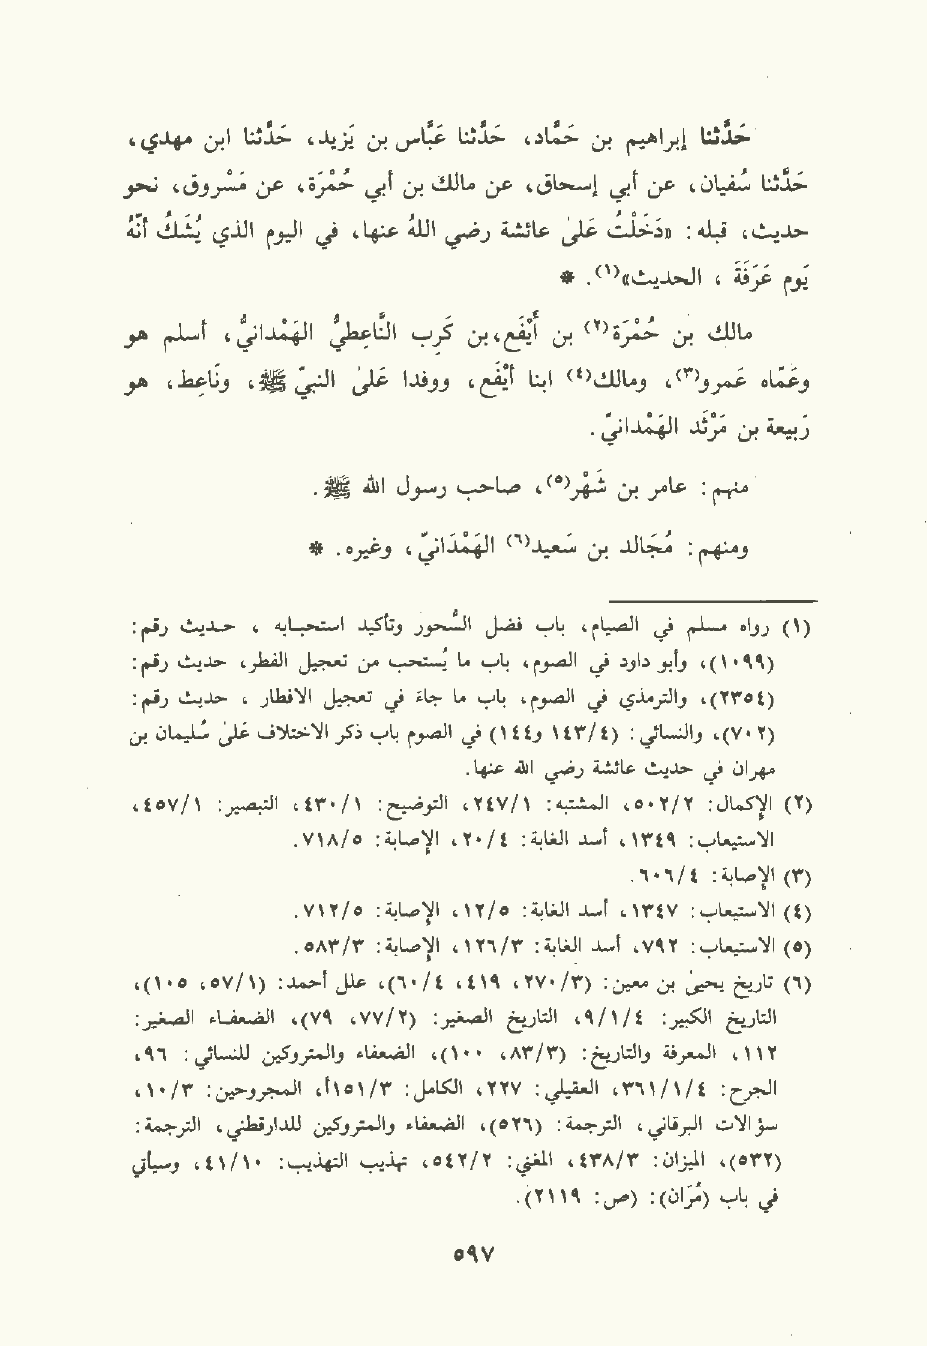 حَدَّثنا إبراهيم بن حَمَّاد، حَدَّثنا عَبَّاس بن يَزيد، حَدَّثنا ابن مهدي،
حَدَّثنا سُفيان، عن أبي إسحاق، عن مالك بن أبي حُمْرَة، عن مَسْروق، نحو
حديث، قبله: «دَخَلْتُ علىٰ عائشة رضي اللهُ عنها، في اليوم الذي يُشَكُّ أنَّهُ
يَوم عَرَفَة ، الحديث»(١). *
مالك بن حُمْرَة(٢) بن أَيْفَع،بن كَرِب النَّاعِطيُّ الهَمْدانيُّ، أسلم هو
وعَمَّاه عَمرو(٣)، ومالك(٤) ابنا أَيْفَع، ووفدا عَلىٰ النبيِّ ﷺ، ونَاعِط، هو
رَبيعة بن مَرْثَد الهَمْدانيّ.
منهم: عامر بن شَهْر(٥)، صاحب رسول الله ﷺ.
ومنهم: مُجَالد بن سَعيد(٦) الهَمْدَانيّ، وغيره. *
(١) رواه مسلم في الصيام، باب فضل السَّحور وتأكيد استحبابه ، حديث رقم:
(١٠٩٩)، وأبو داود في الصوم، باب ما يُستحب من تعجيل الفطر، حديث رقم:
(٢٣٥٤)، والترمذي في الصوم، باب ما جاء في تعجيل الافطار ، حديث رقم:
(٧٠٢)، والنسائي: (١٤٣/٤ و١٤٤) في الصوم باب ذكر الاختلاف عَلىٰ سُليمان بن
مهران في حديث عائشة رضي الله عنها.
(٢) الإكمال: ٥٠٢/٢، المشتبه: ٢٤٧/١، التوضيح: ٤٣٠/١، التبصير: ٤٥٧/١،
الاستيعاب: ١٣٤٩، أسد الغابة: ٢٠/٤، الإصابة: ٧١٨/٥.
(٣) الإصابة: ٦٠٦/٤.
(٤) الاستيعاب: ١٣٤٧، أسد الغابة: ١٢/٥، الإصابة: ٧١٢/٥.
(٥) الاستيعاب: ٧٩٢، أسد الغابة: ١٢٦/٣، الإصابة: ٥٨٣/٣.
(٦) تاريخ يحيىٰ بن معين: (٢٧٠/٣، ٤١٩، ٦٠/٤)، علل أحمد: (٥٧/١، ١٠٥)،
التاريخ الكبير: ٩/١/٤، التاريخ الصغير: (٧٧/٢، ٧٩)، الضعفاء الصغير:
١١٢، المعرفة والتاريخ: (٨٣/٣، ١٠٠)، الضعفاء والمتروكين للنسائي: ٩٦،
الجرح: ٣٦١/١/٤، العقيلي: ٢٢٧، الكامل: ١٥١/٣أ، المجروحين: ١٠/٣،
سؤالات البرقاني، الترجمة: (٥٢٦)، الضعفاء والمتروكين للدارقطني، الترجمة:
(٥٣٢)، الميزان: ٤٣٨/٣، المغني: ٥٤٢/٢، تهذيب التهذيب: ٤١/١٠، وسيأتي
في باب (مُرَان): (ص: ٢١١٩).
٥٩٧